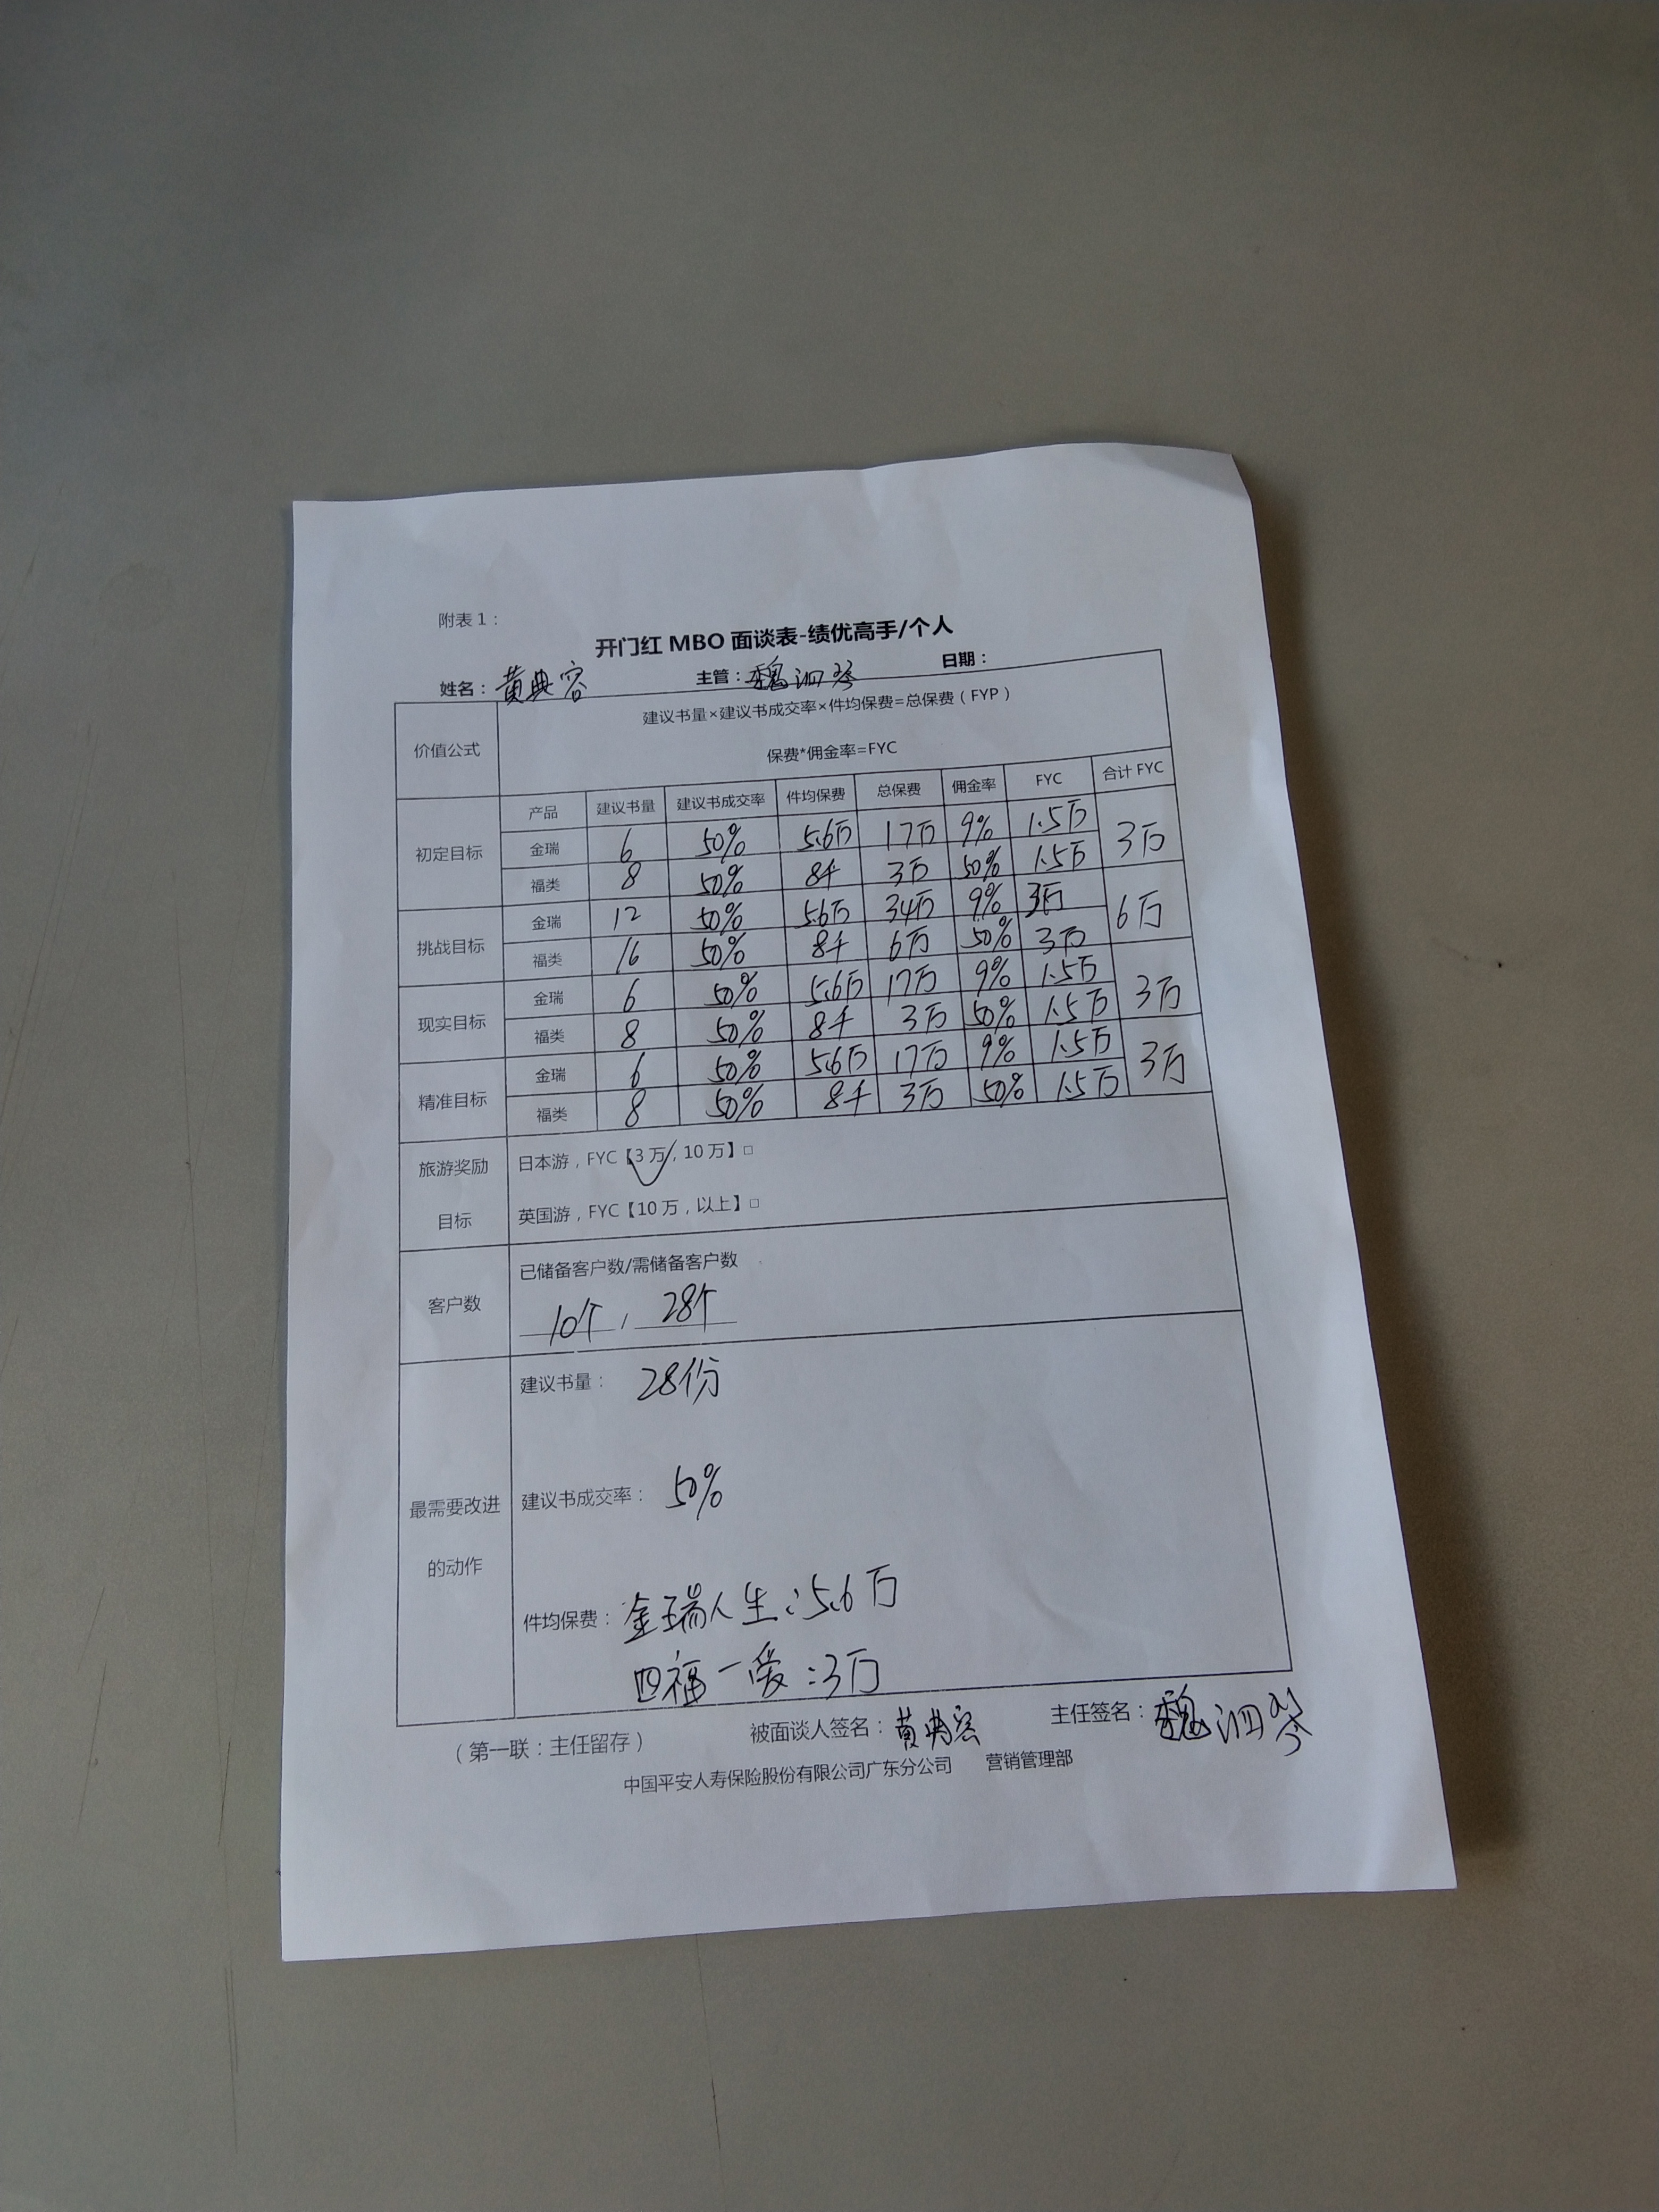 附表1：
开门红 MBO 面谈表-绩优高手/个人
姓名：黄典容 主管：魏泗琴 日期：
价值公式 建议书量×建议书成交率×件均保费=总保费（FYP）
保费*佣金率=FYC
产品 建议书量 建议书成交率 件均保费 总保费 佣金率 FYC 合计 FYC
初定目标 金瑞 6 50% 5.6万 17万 9% 1.5万 3万
福类 8 50% 8千 3万 50% 1.5万
挑战目标 金瑞 12 50% 5.6万 34万 9% 3万 6万
福类 16 50% 8千 6万 50% 3万
现实目标 金瑞 6 50% 5.6万 17万 9% 1.5万 3万
福类 8 50% 8千 3万 50% 1.5万
精准目标 金瑞 6 50% 5.6万 17万 9% 1.5万 3万
福类 8 50% 8千 3万 50% 1.5万
旅游奖励 日本游，FYC【3万，10万】□
目标 英国游，FYC【10万，以上】□
已储备客户数/需储备客户数
客户数 10个 / 28个
建议书量： 28份
最需要改进 建议书成交率： 50%
的动作
件均保费：金瑞人生：5.6万
四福一爱：3万
（第一联：主任留存） 被面谈人签名：黄典容 主任签名：魏泗琴
中国平安人寿保险股份有限公司广东分公司 营销管理部